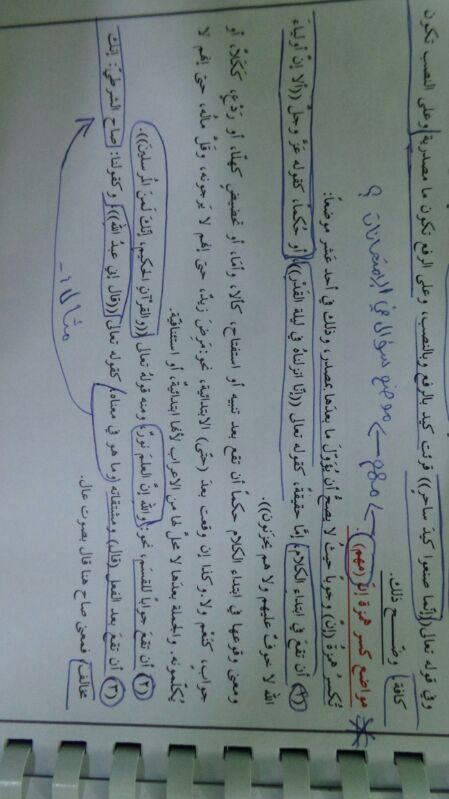 وفي قوله تعالى ((إنّما صنعوا كيدُ ساحرٍ)) قرئت كيد بالرفع وبالنصب، وعلى الرفع تكون ما مصدرية وعلى النصب تكون
كافة وضّح ذلك.
مواضع كسر همزة إنّ (مهم) ← مهم ← موضع سؤال في الامتحانات ؟
تُكسرُ همزةُ (إنّ) وجوباً حيث لا يصحّ أن يُؤوّلَ ما بعدَها بمصدر، وذلك في أحد عشر موضعاً:
(١) أن تقعَ في ابتداءِ الكلامِ إمّا حقيقةً، كقوله تعالى ((إنّا انزلناهُ في ليلةِ القَدْر)) أو حُكماً، كقوله عزّ وجلّ ((ألا إنّ أولياءَ
اللهِ لا خوفٌ عليهم ولا هم يحزنون)).
ومعنى وقوعها في ابتداء الكلام حكماً أن تقع بعد تنبيه أو استفتاح، كألا، وأمَا، أو تحضيضٍ كهلّا، أو رَدْعٍ، ككَلّا، أو
جوابٍ، كنَعْم ولا. وكذا إن وقعت بعدَ (حتى) الابتدائية، نحو: مَرِضَ زيدٌ، حتى إنّهم لا يرجونه، وقَلَّ مالُه، حتى إنّهم لا
يُكلّمونه. والجملة بعدَها لا محلّ لها من الاعراب لأنها ابتدائيةٌ، أو استئنافية.
(٢) أن تقعَ جواباً للقسَمِ، نحو: والله إنّ العلمَ نورٌ، ومنه قولُه تعالى ((والقرآنِ الحكيمِ، إنّكَ لَمنَ المُرسلينَ)).
(٣) أن تقعَ بعد الفعل (قال) ومشتقاته (وما هو في معناه) كقوله تعالى ((قال إني عبدُ الله)) وكقولنا: صاح الشرطيُّ: إنك
مخالف فمعنى صاح هنا قال بصوت عال.
مثال